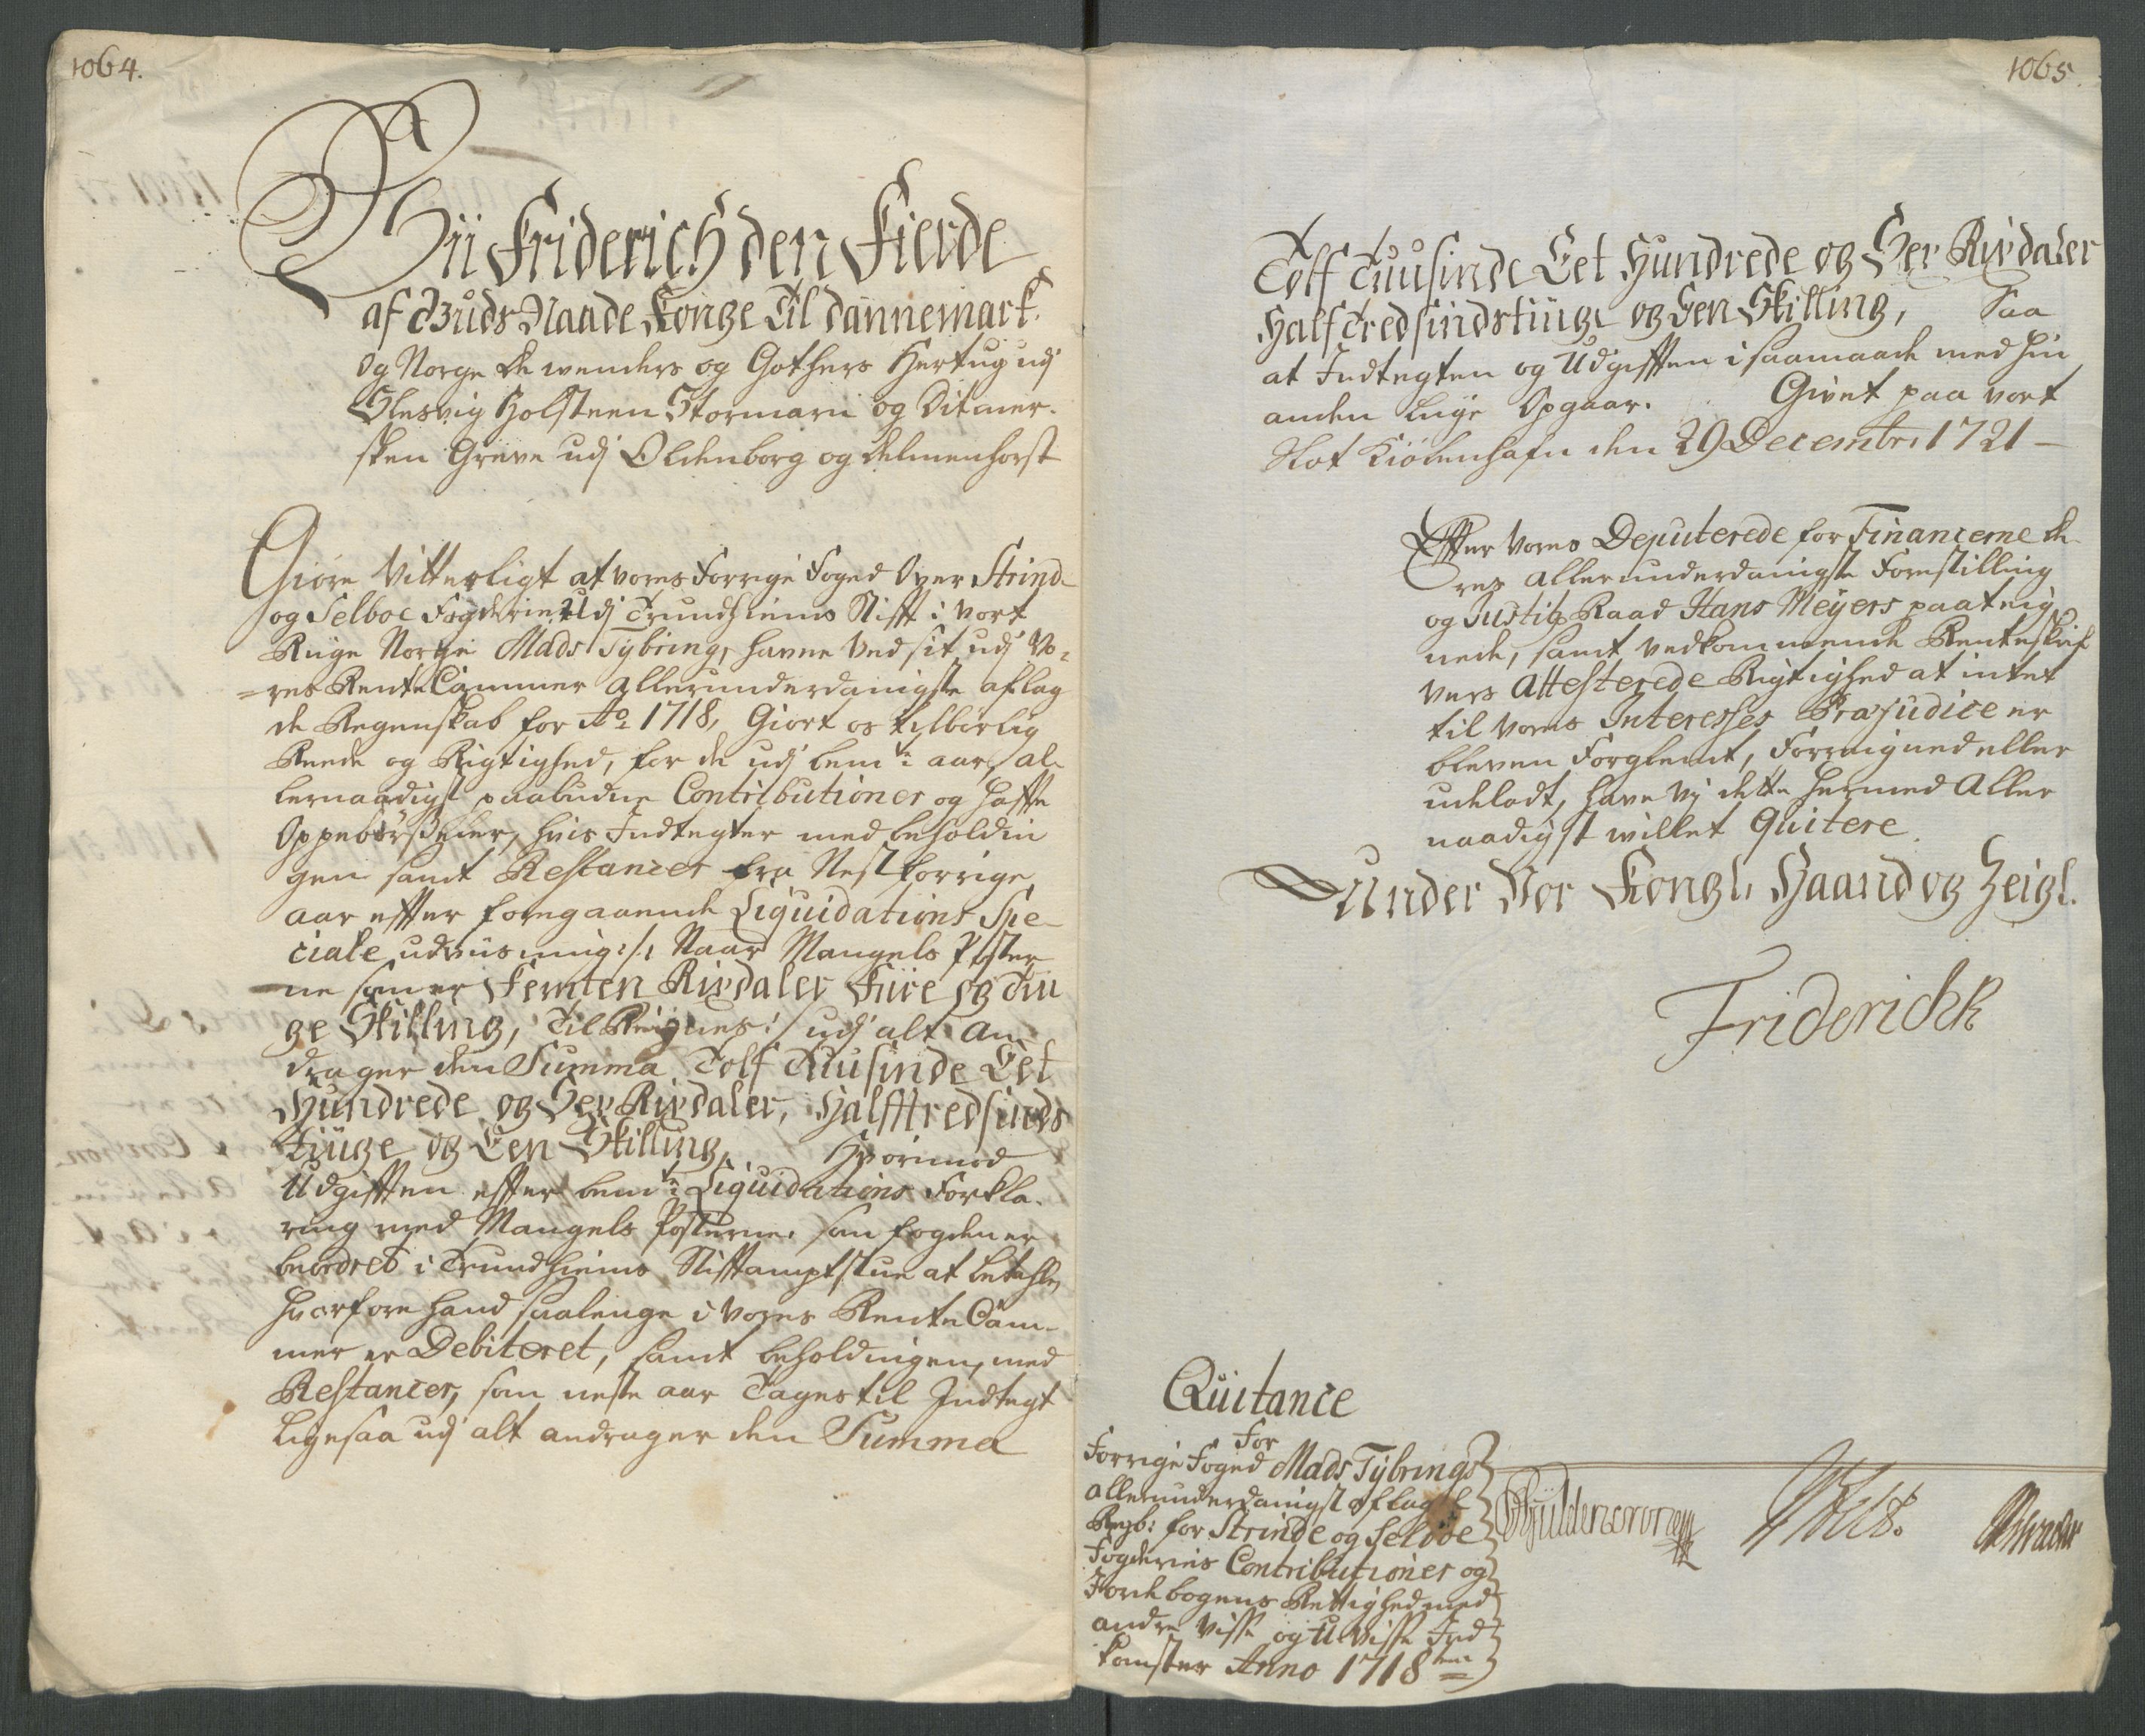 1064.
Vii Friderich den Fierde
af Guds Naade Konge Til Dannemarck.
Og Norge de wenders og Gothers Hertug udj
Slesvig Holsteen Stormarn og Ditmer-
sken Greve udj Oldenborg og Delmenhorst
Giøre Vitterligt at vores Forrige Foged Over Strind-
og Selboe Fogderie Udj Trundhiems Stifft i vort
Riige Norge Mads Tybring, hafver ved sit udj Vo-
=res Rente Cammer allerunderdanigste aflag
de Regenskab for Ao 1718, Giort os tilbørlig
Reede og Rigtighed, for de udj bemte: aar, al-
lernaadigst paabudne Contributioner og Hafte
Oppebørseler, hvis Indtegter med beholdin
gen samt Restancer fra Nest forrige
aar effter foregaaende Liquidations Spe-
ciale udviisning :/: Naar Mangels Poster
ne som er Femten Rixdaler Fiire og Tiu
ge Skilling, Til Reignes :/ udj alt an
drager den Summa Tolf Tuusinde Eet
Hundrede og Sex Rixdaler, Halfftredsinds
Tiuge og Een Skilling, Hvorimod
Udgifften effter bemte: Liquidations Forkla-
ring med Mangels Posterne, som fogden er
beordret i Trundhiems Stifftamptstue at betahle,
Hvorfore hand saalenge i vores Rente Cam-
mer er Debiteret, samt beholdningen, med
Restancer, som neste aar Tages til Indtegt
Ligesaa udj alt andrager den Summa
1065.
Tolf Tuusinde Eet Hundrede og Sex Rixdaler
Halftredsindstiuge og Een Skilling, Saa
at Indtegten og Udgifften i saamaade med hin
anden Liige Opgaar. Givet paa vort
Slot Kiøbenhafn den 29 Decembr: 1721 -
Effter vores Deputerede for Financerne de-
res allerunderdanigste Forestilling
og Justitz Raad Hans Meyers paateig
nede, samt vedkommende Renteskrif
vers Attesterede Rigtighed at intet
til vores Interesses Præjudice er
bleven Forglemt, Forreigned eller
udeladt, have Vj dette hermed Aller
naadigst willet Quitere.
Under Vor Kongl: Haand og Zeigl.
Friderich R
Quitance
For
Forrige Foged Mads Tybrings
allerunderdanigst aflagde
Regb: for Strinde og Selboe
Fogderies Contributioner og
Jordebogens Rettighed med
andre visse og U-visse Ind
komster Anno 1718
Gÿldencrone